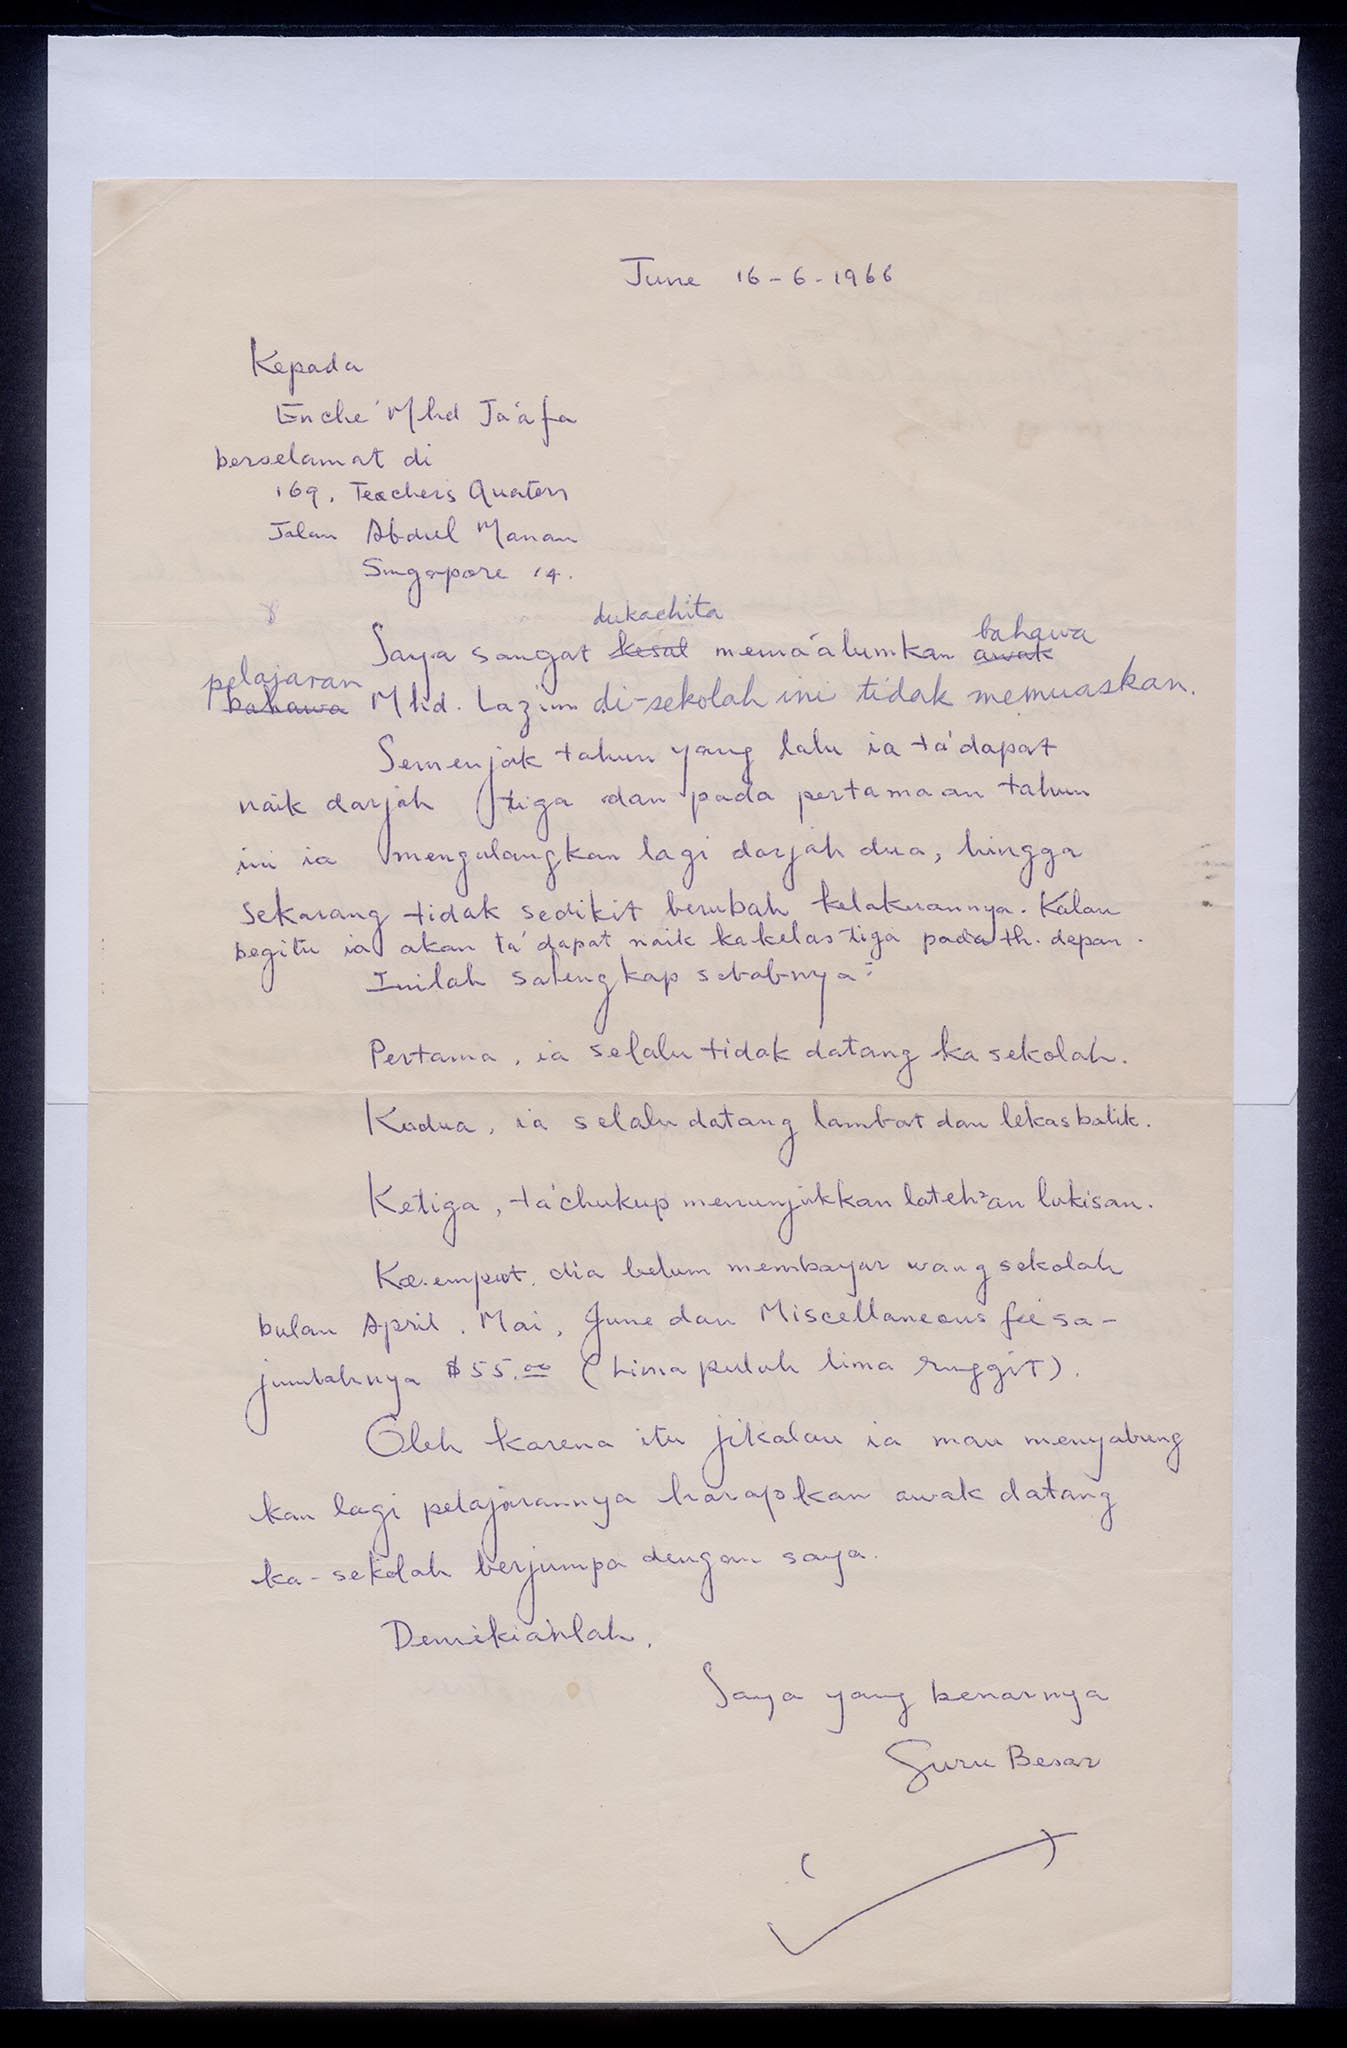 June 16-6-1966
Kepada
Enche' Mhd Ja'afa
berselamat di
169, Teachers Quaters
Jalan Abdul Manan
Singapore 14.
dukachita bahawa
Saya sangat kesal mema'alumkan awak
pelajaran
bahawa Mhd. Lazim di-sekolah ini tidak memuaskan.
Semenjak tahun yang lalu ia ta'dapat
naik darjah tiga dan pada pertamaan tahun
ini ia mengulangkan lagi darjah dua, hingga
sekarang tidak sedikit berubah kelakuannya. Kalau
begitu ia akan ta'dapat naik kakelas tiga pada th. depan.
Inilah salengkap sebabnya:
Pertama, ia selalu tidak datang ka sekolah.
Kadua, ia selalu datang lambat dan lekas balik.
Ketiga, ta'chukup menunjukkan lateh2an lukisan.
Ka-empat, dia belum membayar wang sekolah
bulan April, Mai, June dan Miscellaneous fee sa-
jumlahnya $55.00 (Lima puloh lima ringgit).
Oleh karena itu jikalau ia mau menyabung
kan lagi pelajarannya harapkan awak datang
ka-sekolah berjumpa dengan saya.
Demikianlah,
Saya yang benarnya
Guru Besar
( )